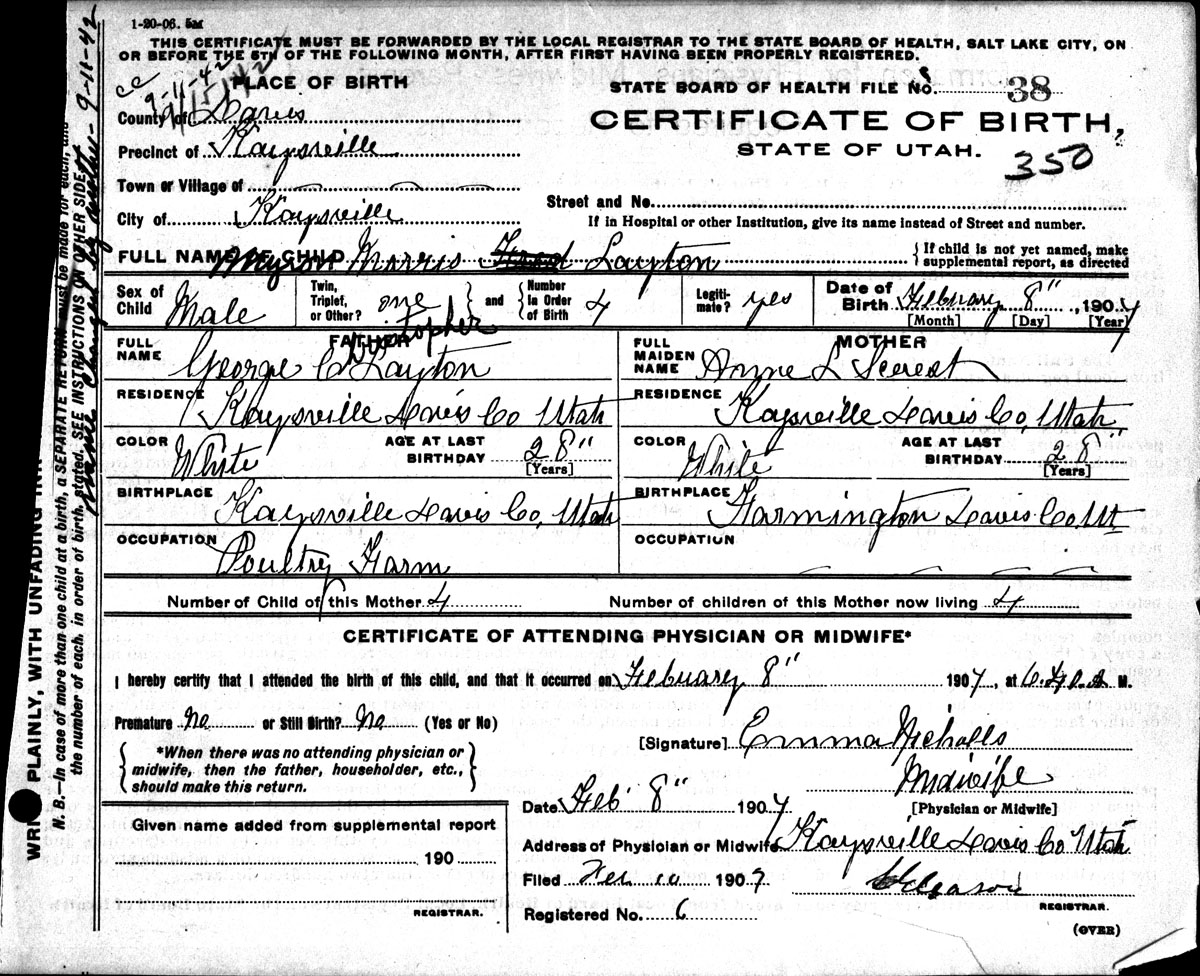 1-20-06. 5M
THIS CERTIFICATE MUST BE FORWARDED BY THE LOCAL REGISTRAR TO THE STATE BOARD OF HEALTH, SALT LAKE CITY, ON
OR BEFORE THE 5TH OF THE FOLLOWING MONTH, AFTER FIRST HAVING BEEN PROPERLY REGISTERED.
PLACE OF BIRTH
9-11-42
STATE BOARD OF HEALTH FILE No. 38
County of Davis
CERTIFICATE OF BIRTH,
Precinct of Kaysville
STATE OF UTAH.
350
Town or Village of
City of Kaysville
Street and No.
If in Hospital or other Institution, give its name instead of Street and number.
FULL NAME OF CHILD Myron Morris Layton
{If child is not yet named, make supplemental report, as directed
Sex of Child Male
Twin, Triplet, or Other? one
and
Number in Order of Birth 4
Legiti-mate? yes
Date of Birth Febuary 8", 1907
[Month] [Day] [Year]
FATHER
MOTHER
FULL NAME George C Layton
FULL MAIDEN NAME Anne L Secrest
RESIDENCE Kaysville Davis Co Utah
RESIDENCE Kaysville Davis Co, Utah,
COLOR White
AGE AT LAST BIRTHDAY 28" [Years]
COLOR White
AGE AT LAST BIRTHDAY 28" [Years]
BIRTHPLACE Kaysville Davis Co, Utah
BIRTHPLACE Farmington Davis Co, Ut
OCCUPATION Poultry Farm
OCCUPATION
Number of Child of this Mother 4
Number of children of this Mother now living 4
CERTIFICATE OF ATTENDING PHYSICIAN OR MIDWIFE*
I hereby certify that I attended the birth of this child, and that it occurred on Febuary 8" 1907, at M.
Premature No or Still Birth? No (Yes or No)
[Signature] Emma Nicholls
*When there was no attending physician or
midwife, then the father, householder, etc.,
should make this return.
Midwife
[Physician or Midwife]
Date Feb 8" 1907
Given name added from supplemental report
190
REGISTRAR.
Address of Physician or Midwife Kaysville Davis Co Utah
Filed Feb 10 1907
REGISTRAR.
Registered No. 6
(OVER)
PLAINLY, WITH UNFADING
N. B.—In case of more than one child at a birth, a SEPARATE RETURN must be made for each, and
the number of each, in order of birth, stated. SEE INSTRUCTIONS ON OTHER SIDE.
Name changed by mother - 9-11-42